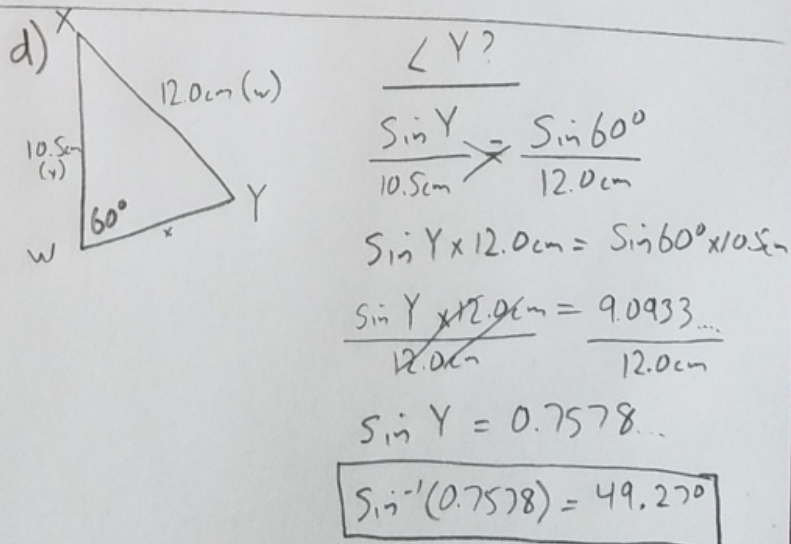 d)
X
12.0cm (w)
10.5cm
(y)
60°
W
x
Y
∠Y?
Sin Y / 10.5cm = Sin 60° / 12.0cm
Sin Y x 12.0cm = Sin 60° x 10.5cm
Sin Y x 12.0cm / 12.0cm = 9.0933... / 12.0cm
Sin Y = 0.7578...
Sin⁻¹(0.7578) = 49.27°